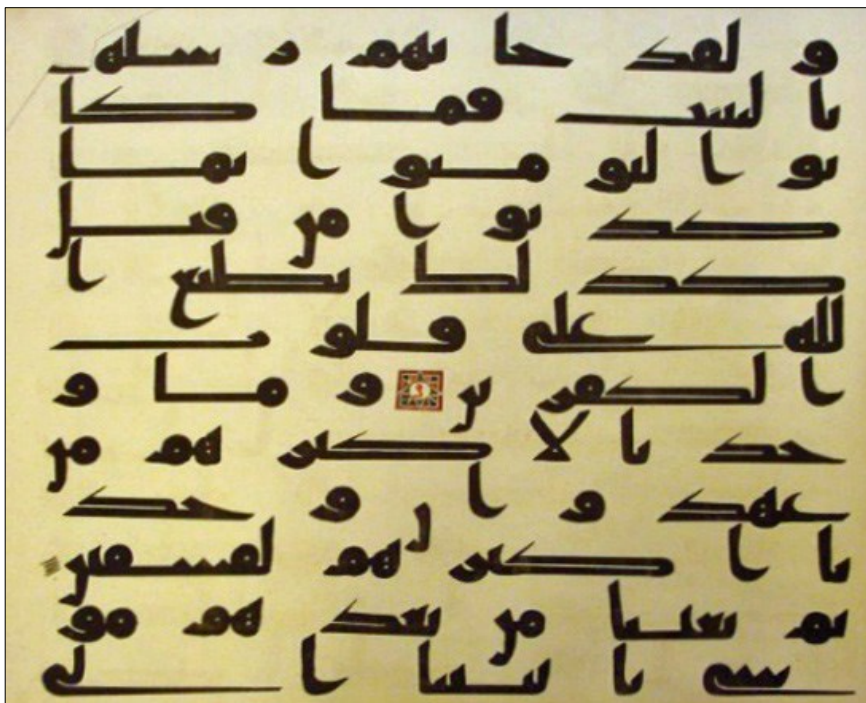 و لقد جا تهم ر سلهم
با لبينت فما كا
نو ا ليو منو ا بما
كذ بو ا من قبل
كذ لك يطبع ا
لله على قلو ب
ا لكفر ين و ما و
جد نا لا كثر هم من
عهد و ا ن و جد
نا ا كثر هم لفسقين
ثم بعثنا من بعد هم مو
سى با يتنا ا لى